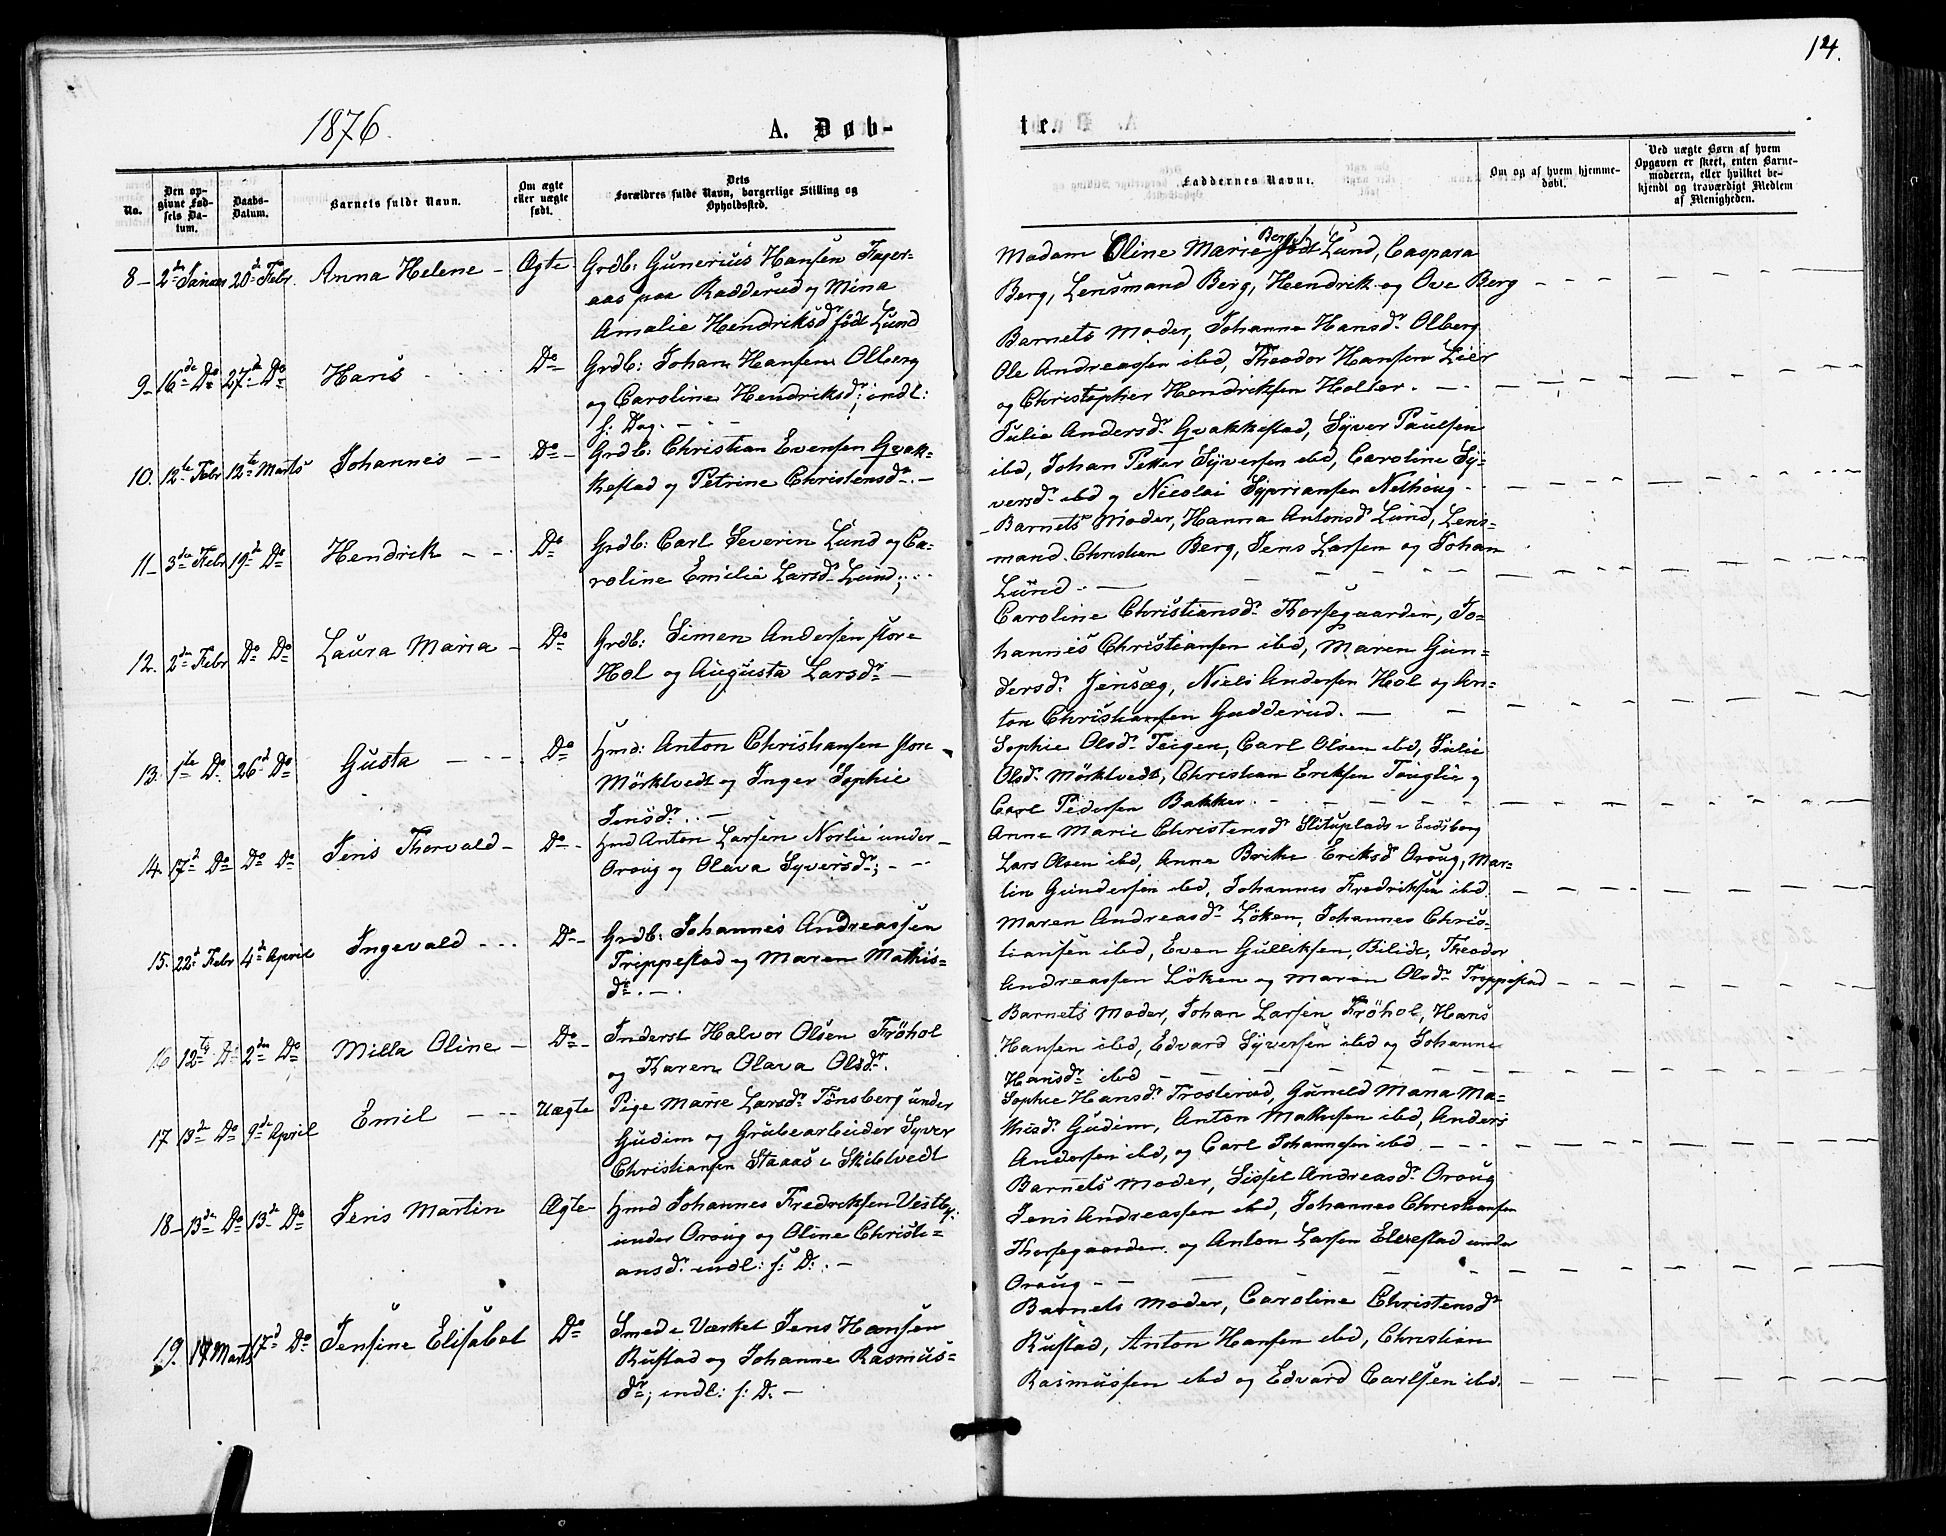 14.
1876.
A. Døb-
te.
No.
Den op-
givne Fød-
sels Da-
tum.
Daabs-
Datum.
Barnets fulde Navn.
Om ægte
eller uægte
født.
Dets
Forældres fulde Navn, borgerlige Stilling og
Opholdssted.
Faddernes Navne.
Om og af hvem hjemme-
døbt.
Ved uægte Børn af hvem
Opgaven er skeet, enten Barne-
moderen, eller hvilket be-
kjendt og troværdigt Medlem
af Menigheden.
8 - 2de Januar 20de Febr. Anna Helene - Ægte
Grdb: Gunerius Hansen Fager-
aas paa Radderud og Mina
Amalie Hendriksdr født Lund
Madam Oline Marie Berg født Lund, Caspara
Berg, Lensmand Berg, Hendrik og Ove Berg
9 - 16de Do 27de Do Hans - Do
Grdb: Johan Hansen Olberg
og Caroline Hendriksdr; indl:
s: Dag. -
Barnets Moder, Johanne Hansdr Olberg
Ole Andreassen ibd, Theodor Hansen Lier
og Christopher Hendriksen Holter. -
10. 12te Febr 12te Marts Johannes - Do -
Grdb: Christian Evensen Qvak-
kestad og Petrine Christensdr. -
Julie Andersdr Qvakkestad, Syver Paulsen
ibd, Johan Petter Syversen ibd, Caroline Sy-
versdr ibd og Nicolai Sypriansen Nethoug -
11 - 3die Febr 19de Do Hendrik - Do
Grdb: Carl Severin Lund og Ca-
roline Emilie Larsdr Lund;
Barnets Moder, Hanna Antonsdr Lund, Lens-
mand Christian Berg, Jens Larsen og Johan
Lund. -
12. 2den Febr Do Do Laura Maria - Do
Grdb: Simen Andersen store
Hol og Augusta Larsdr -
Caroline Christiansdr Korsegaarden, Jo-
hannes Christiansen ibd, Maren Gun-
dersdr Jensæg, Niels Andersen Hol og An-
ton Christiansen Gudderud. -
13. 1ste Do 26de Do Gusta - Do
Hmd: Anton Christiansen store
Mörktvedt og Inger Sophie
Jensdr. -
Sophie Olsdr Teigen, Carl Olsen ibd, Julie
Olsdr Mörktvedt, Christian Eriksen Touglie og
Carl Pedersen Bakker.
14. 17de Do Do Do Jens Thorvald - Do -
Hmd Anton Larsen Norlie under
Oroug og Olava Syversdr; -
Anne Marie Christensdr Slituplads i Eidsberg
Lars Olsen ibd, Anne Birthe Eriksdr Oroug, Mar-
tin Gundersen ibd, Johannes Fredriksen ibd.
15. 22de Febr 4de April Ingevald - Do -
Grdb: Johannes Andreassen
Trippestad og Maren Mathis-
dr. -
Maren Andreasdr Löken, Johannes Chris-
tiansen ibd, Even Gulliksen, Bilidt, Theodor
Andreassen Löken og Maren Olsdr Trippestad
16 12te Do 2den Do Milla Oline - Do -
Inderst Halvor Olsen Fröhol
og Karen Olava Olsdr.
Barnets Moder, Johan Larsen Fröhol, Hans
Hansen ibd, Edvard Syversen ibd og Johanne
Hansdr ibd
17. 13de Do 9de April Emil - Uægte
Pige Marie Larsdr Tönsberg under
Gudim og Grubearbeider Syver
Christiansen Staaas i Skiptvedt
Sophie Hansdr Trosterud, Gunild Maria Ma-
thisdr Gudim, Anton Mathisen ibd, Anders
Andersen ibd, og Carl Johannesen ibd
18 - 13de Do 13de Do Jens Martin Ægte
Hmd Johannes Fredriksen Vestby
under Oroug og Oline Christi-
ansdr indl: s: D: -
Barnets Moder, Sissel Andreasdr Oroug
Jens Andreassen ibd, Johannes Christiansen
Korsegaarden og Anton Larsen Ellestad under
Oroug -
19. 17 Marts 17de Do Jensine Elisabet Do
Smed i Værket Jens Hansen
Rustad og Johanne Rasmus-
dr; indl: s: D. -
Barnets Moder, Caroline Christensdr
Rustad, Anton Hansen ibd, Christian
Rasmussen ibd og Edvard Carlsen ibd.